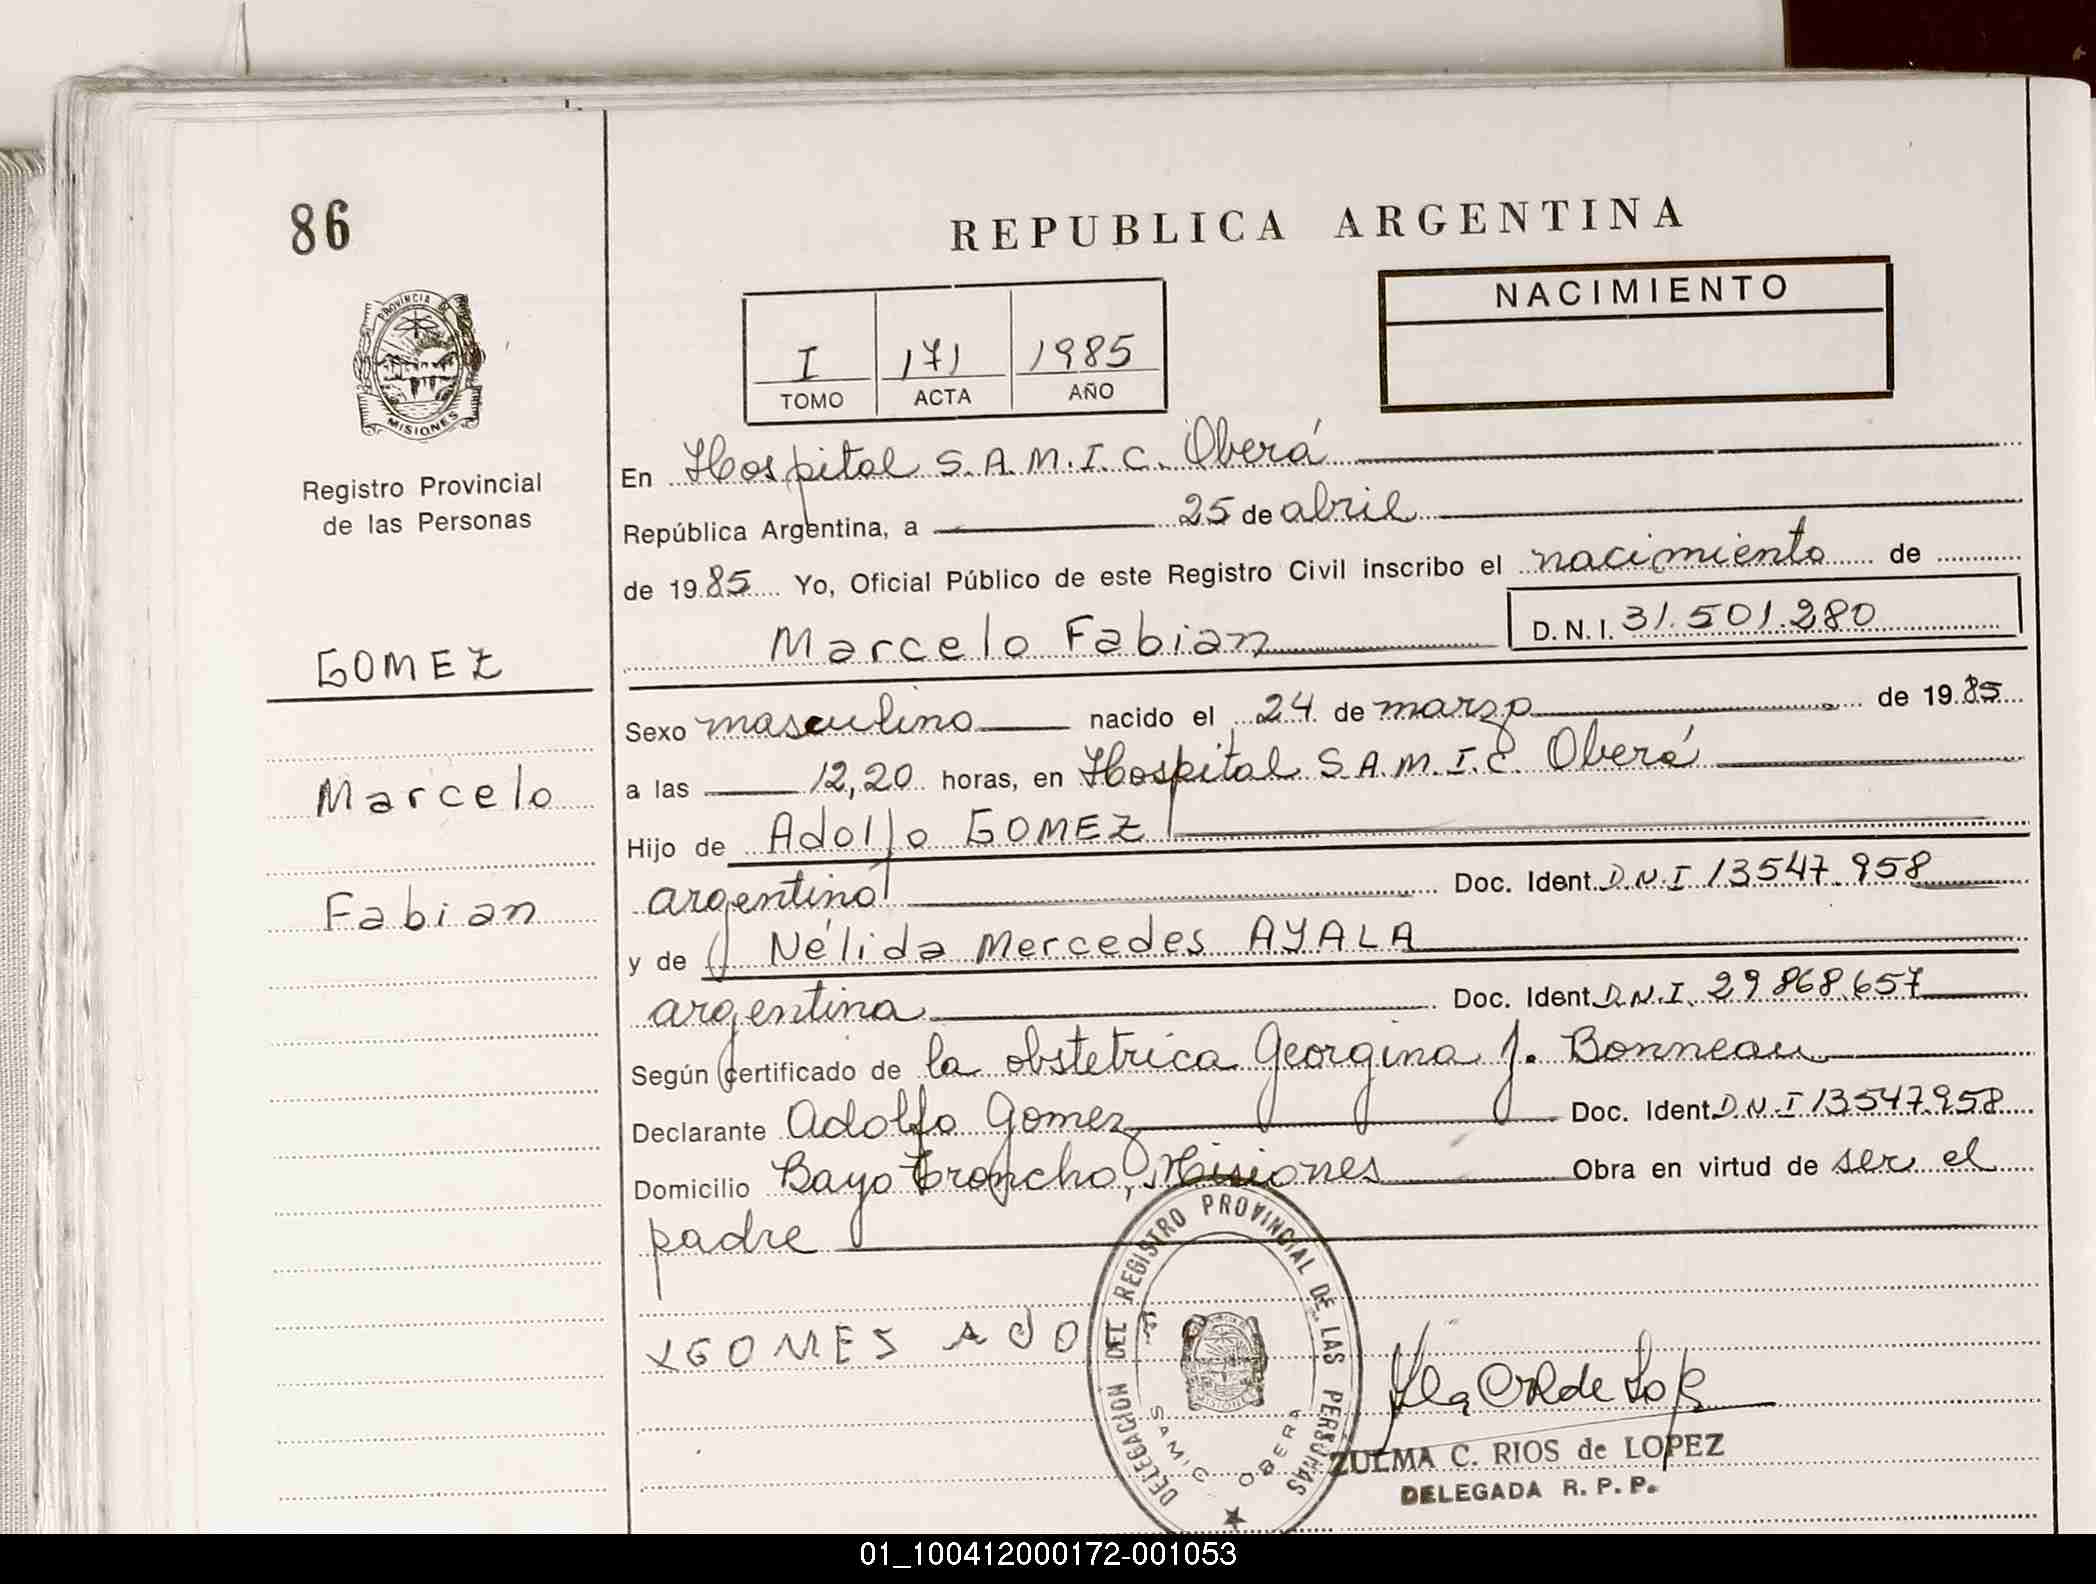 86
REPUBLICA ARGENTINA
PROVINCIA DE MISIONES
Registro Provincial
de las Personas
I 171 1985
TOMO ACTA AÑO
NACIMIENTO
En Hospital S.A.M.I.C. Oberá
República Argentina, a 25 de abril
de 1985 Yo, Oficial Público de este Registro Civil inscribo el nacimiento de
Marcelo Fabian D.N.I. 31.501.280
GOMEZ
Marcelo
Fabian
Sexo masculino nacido el 24 de marzo de 1985
a las 12,20 horas, en Hospital S.A.M.I.C. Oberá
Hijo de Adolfo GOMEZ
argentino Doc. Ident. D.N.I 13547.958
y de Nélida Mercedes AYALA
argentina Doc. Ident. D.N.I. 29868.657
Según certificado de la obstetrica Georgina J. Bonneau
Declarante Adolfo Gomez Doc. Ident. D.N.I 13547.958
Domicilio Bayo Troncho, Misiones Obra en virtud de ser el
padre
GOMES ADO
DELEGACION DEL REGISTRO PROVINCIAL DE LAS PERSONAS
SAMIC OBERA
ZULMA C. RIOS de LOPEZ
DELEGADA R. P. P.
01_100412000172-001053